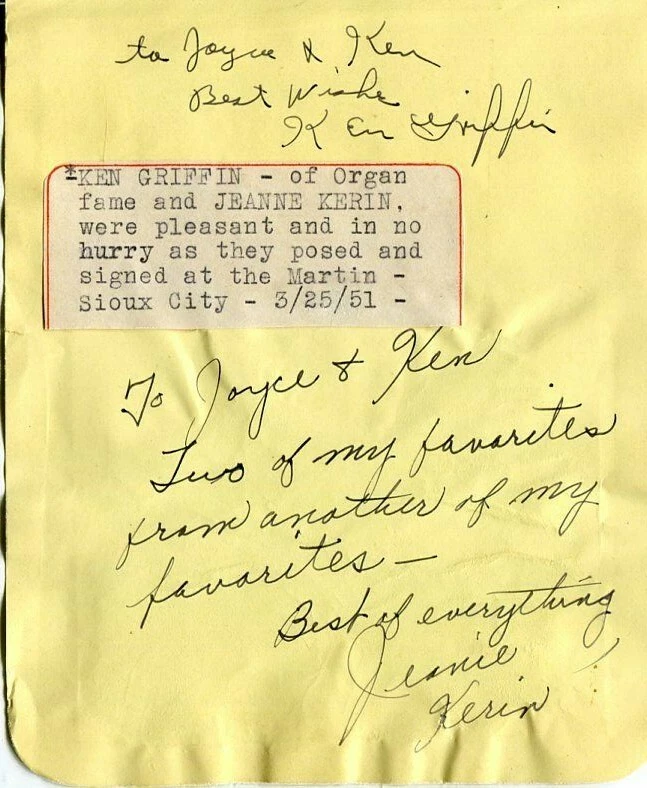 to Joyce & Ken
Best Wishe
Ken Griffin
*KEN GRIFFIN - of Organ
fame and JEANNE KERIN,
were pleasant and in no
hurry as they posed and
signed at the Martin -
Sioux City - 3/25/51 -
To Joyce & Ken
Two of my favorites
from another of my
favorites -
Best of everything,
Jeanie
Kerin